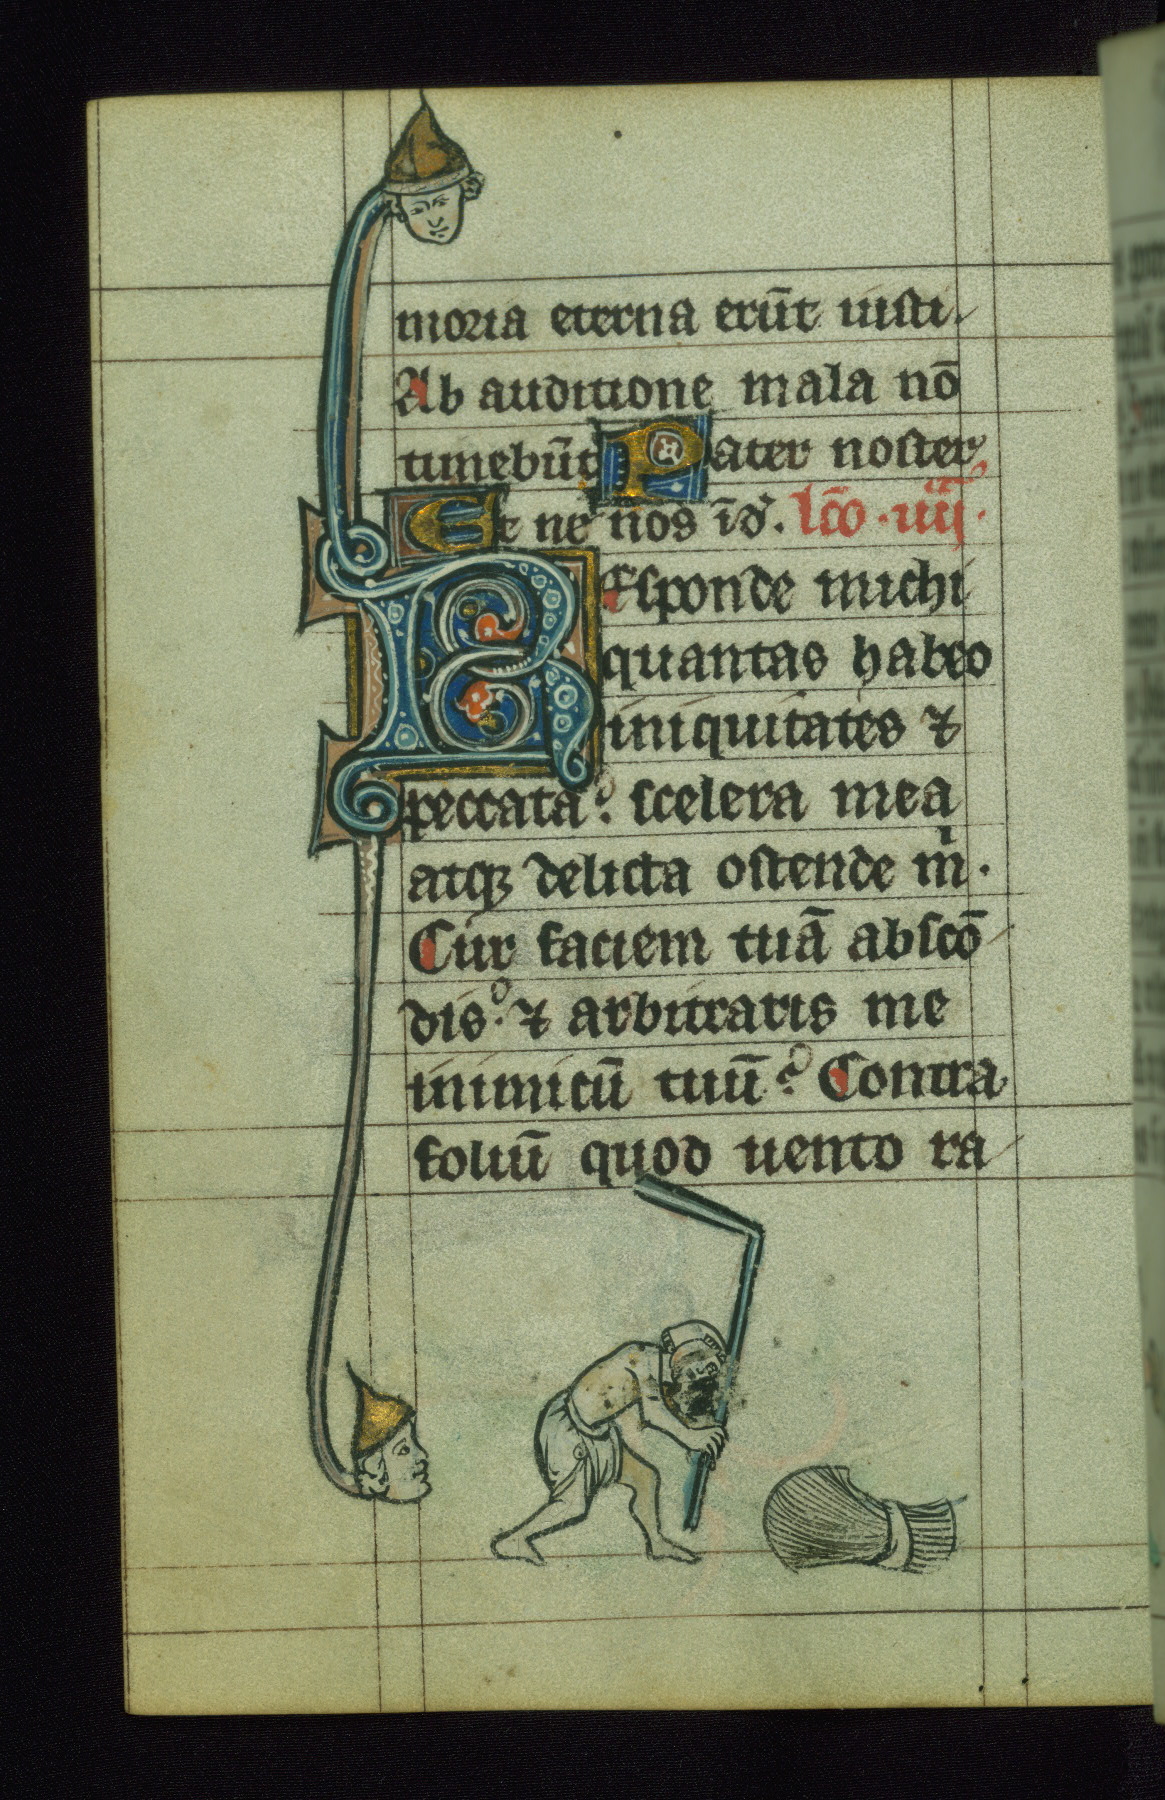 moria eterna erūt iusti
Ab auditione mala nō
timebūt Pater noster
Et ne nos īd'. lc̄o .iiij.
Responde michi
quantas habeo
iniquitates ⁊
peccata? scelera mea
atqꝫ delicta ostende m̄.
Cur faciem tuā abscō
dis? ⁊ arbitraris me
inimicū tuū? Contra
foliū quod uento ra